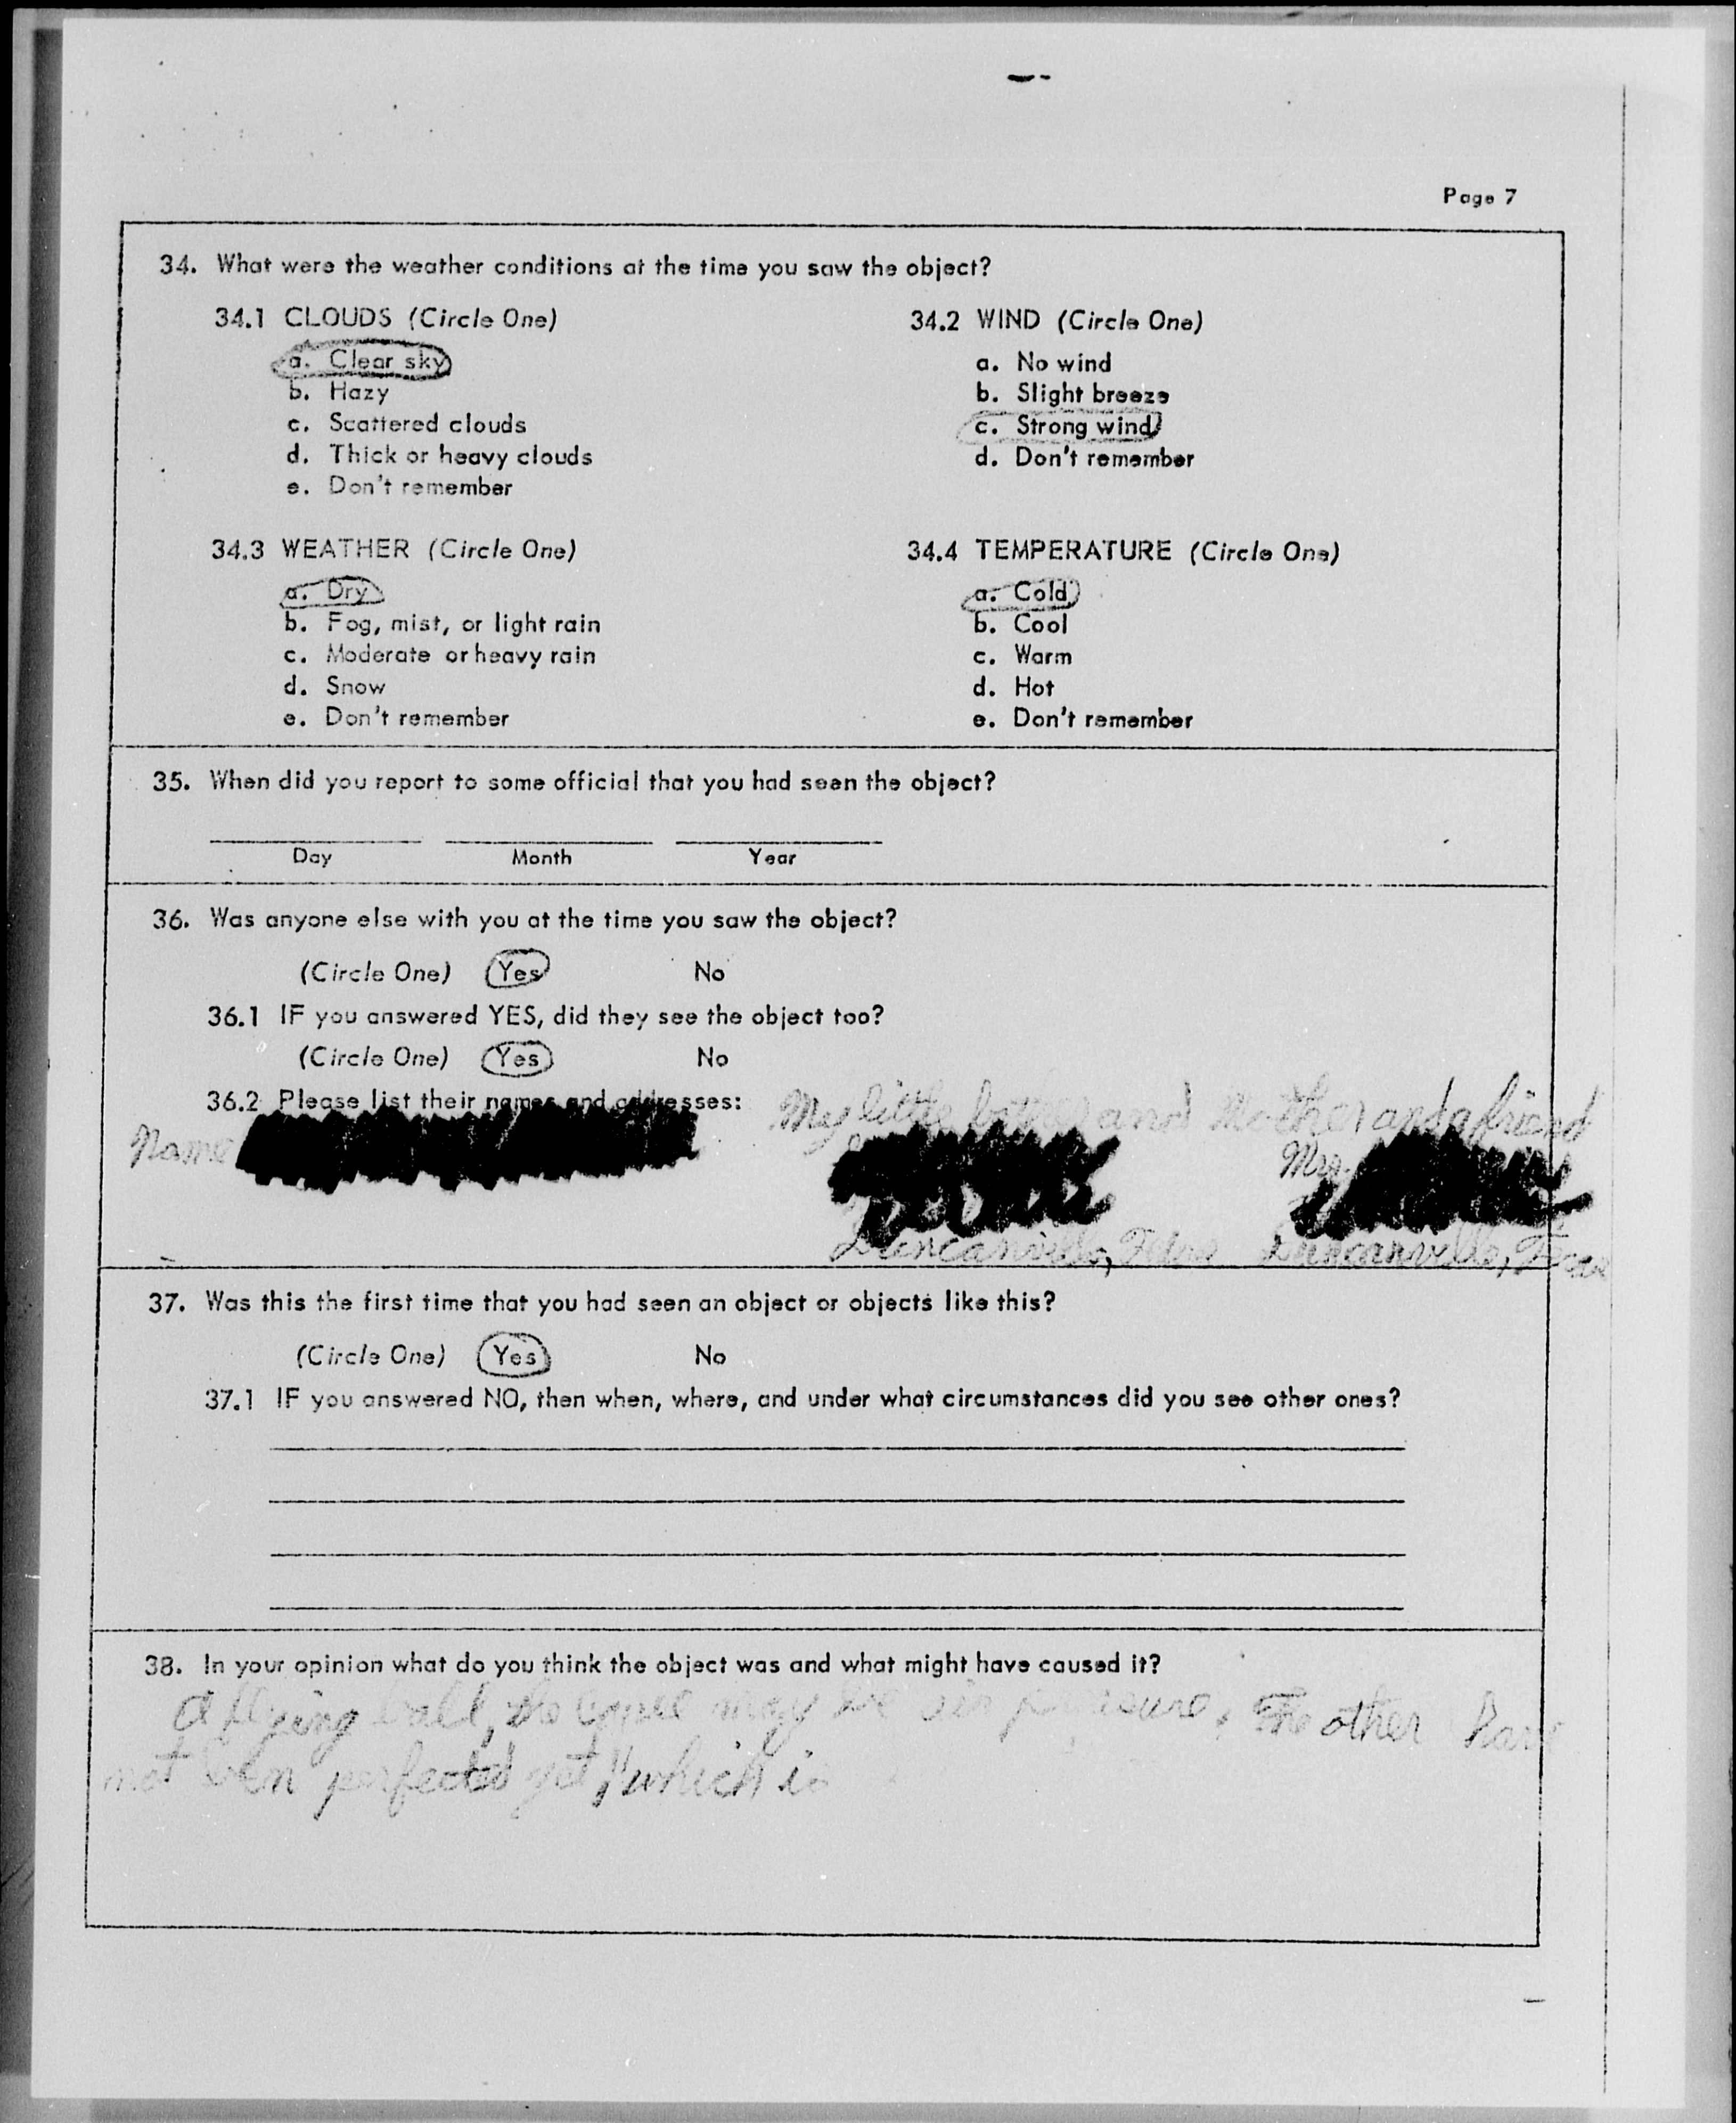 Page 7
34. What were the weather conditions at the time you saw the object?
34.1 CLOUDS (Circle One)
a. Clear sky
b. Hazy
c. Scattered clouds
d. Thick or heavy clouds
e. Don't remember
34.2 WIND (Circle One)
a. No wind
b. Slight breeze
c. Strong wind
d. Don't remember
34.3 WEATHER (Circle One)
a. Dry
b. Fog, mist, or light rain
c. Moderate or heavy rain
d. Snow
e. Don't remember
34.4 TEMPERATURE (Circle One)
a. Cold
b. Cool
c. Warm
d. Hot
e. Don't remember
35. When did you report to some official that you had seen the object?
Day Month Year
36. Was anyone else with you at the time you saw the object?
(Circle One) Yes No
36.1 IF you answered YES, did they see the object too?
(Circle One) Yes No
36.2 Please list their names and addresses: My little and Mother and a friend
Name Mrs.
Duncanville, Texas Duncanville, Texas
37. Was this the first time that you had seen an object or objects like this?
(Circle One) Yes No
37.1 IF you answered NO, then when, where, and under what circumstances did you see other ones?
38. In your opinion what do you think the object was and what might have caused it?
A flying ball, the may be air The other have
not been perfected yet, which is